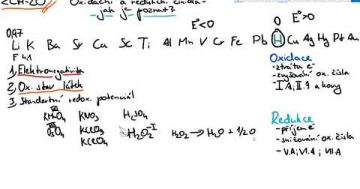 2CH-2O Oxidační a redukční činidla
- jak je poznat?
E°<0 0 E°>0
0,97
Li K Ba Sr Ca Sc Ti Al Mn V Cr Fe Pb H Cu Ag Hg Pt Au
1) Elektronegativita
2) Ox. stav látek
3) Standartní redox. potenciál
KMnO₄ KNO₃ H₂SO₄
KClO₃ H₂O₂ H₂O₂ → H₂O + 1/2 O
KClO₄
Oxidace
- ztráta e⁻
- zvyšování ox. čísla
- I.A, II.A a kovy
Redukce
- příjem e⁻
- snižování ox. čísla
- V.A, VI.A, VII.A